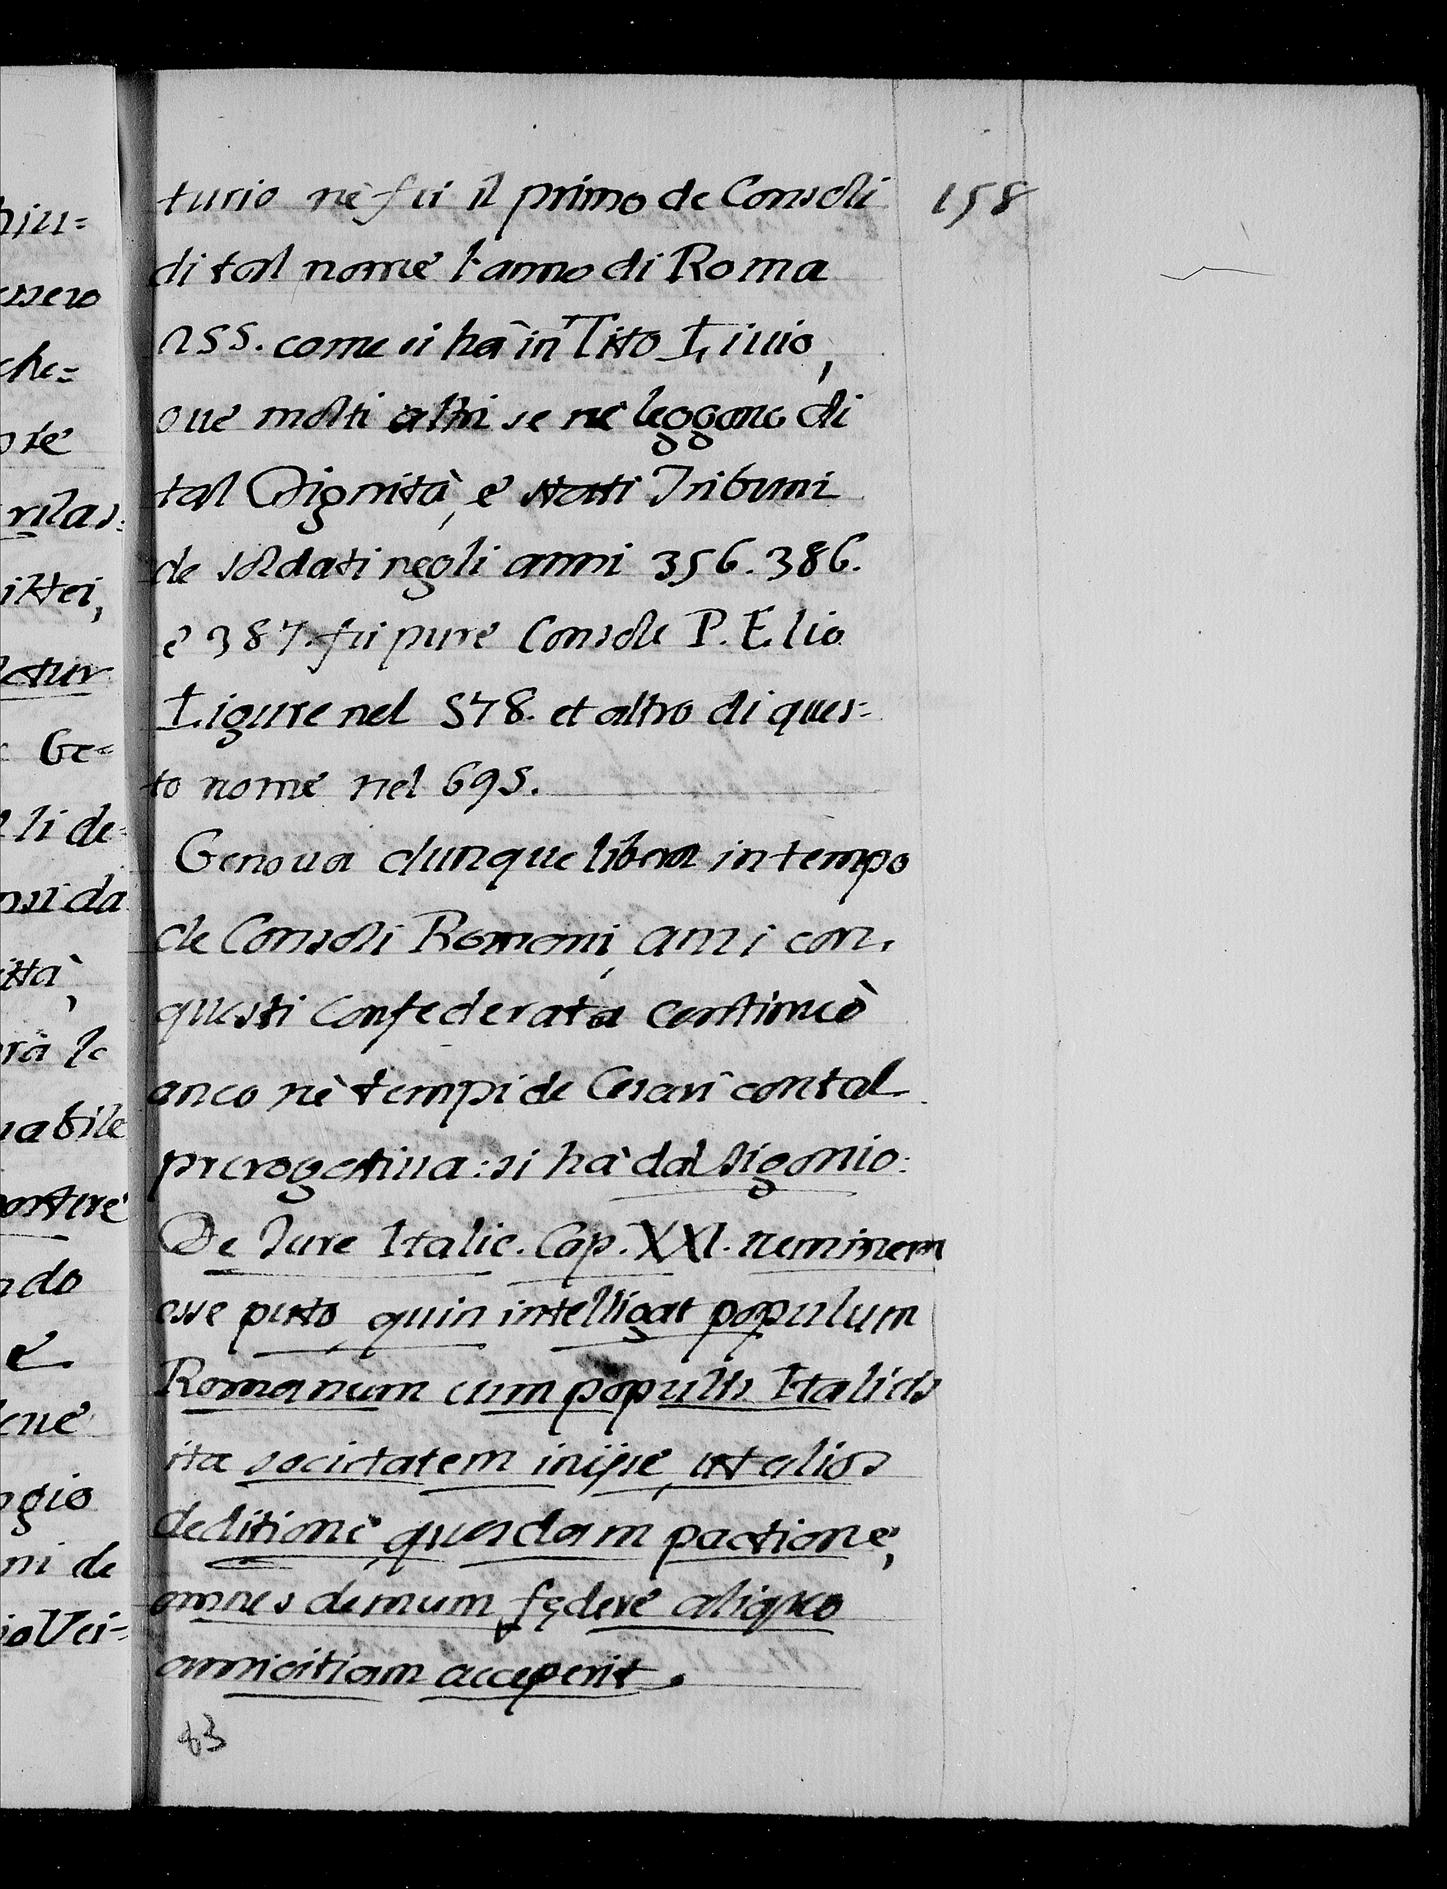 turio nè fù il primo de Consoli
158
di tal nome l'anno di Roma
255. come si hà in Tito Liuio,
oue molti altri se ne leggono di
tal Dignità, e stati Tribuni
de soldati negli anni 356. 386.
e 387. fù pure Console P. Elio
Ligure nel 578. et altro di ques=
to nome nel 695.
Genoua dunque libera in tempo
de Consoli Romani, anzi con,
questi Confederata continuò
anco nè tempi de Cesari con tal
prerogatiua: si hà dal Sigonio:
De Iure Italic. Cap. XXI. neminem
esse puto, quin intelligat populum
Romanum cum populis Italicis
ita societatem inijse, ut alios
deditione, quosdam pactione,
omnes demum fędere aliquo
amicitiam acceperit.
83
hiu=
essero
che=
ore
rilas=
ittei,
ctur
Ge=
li de=
nsi da
ittà,
rà le
uabile
ontere
ndo
e
ene
gio
ni de
io Vei=